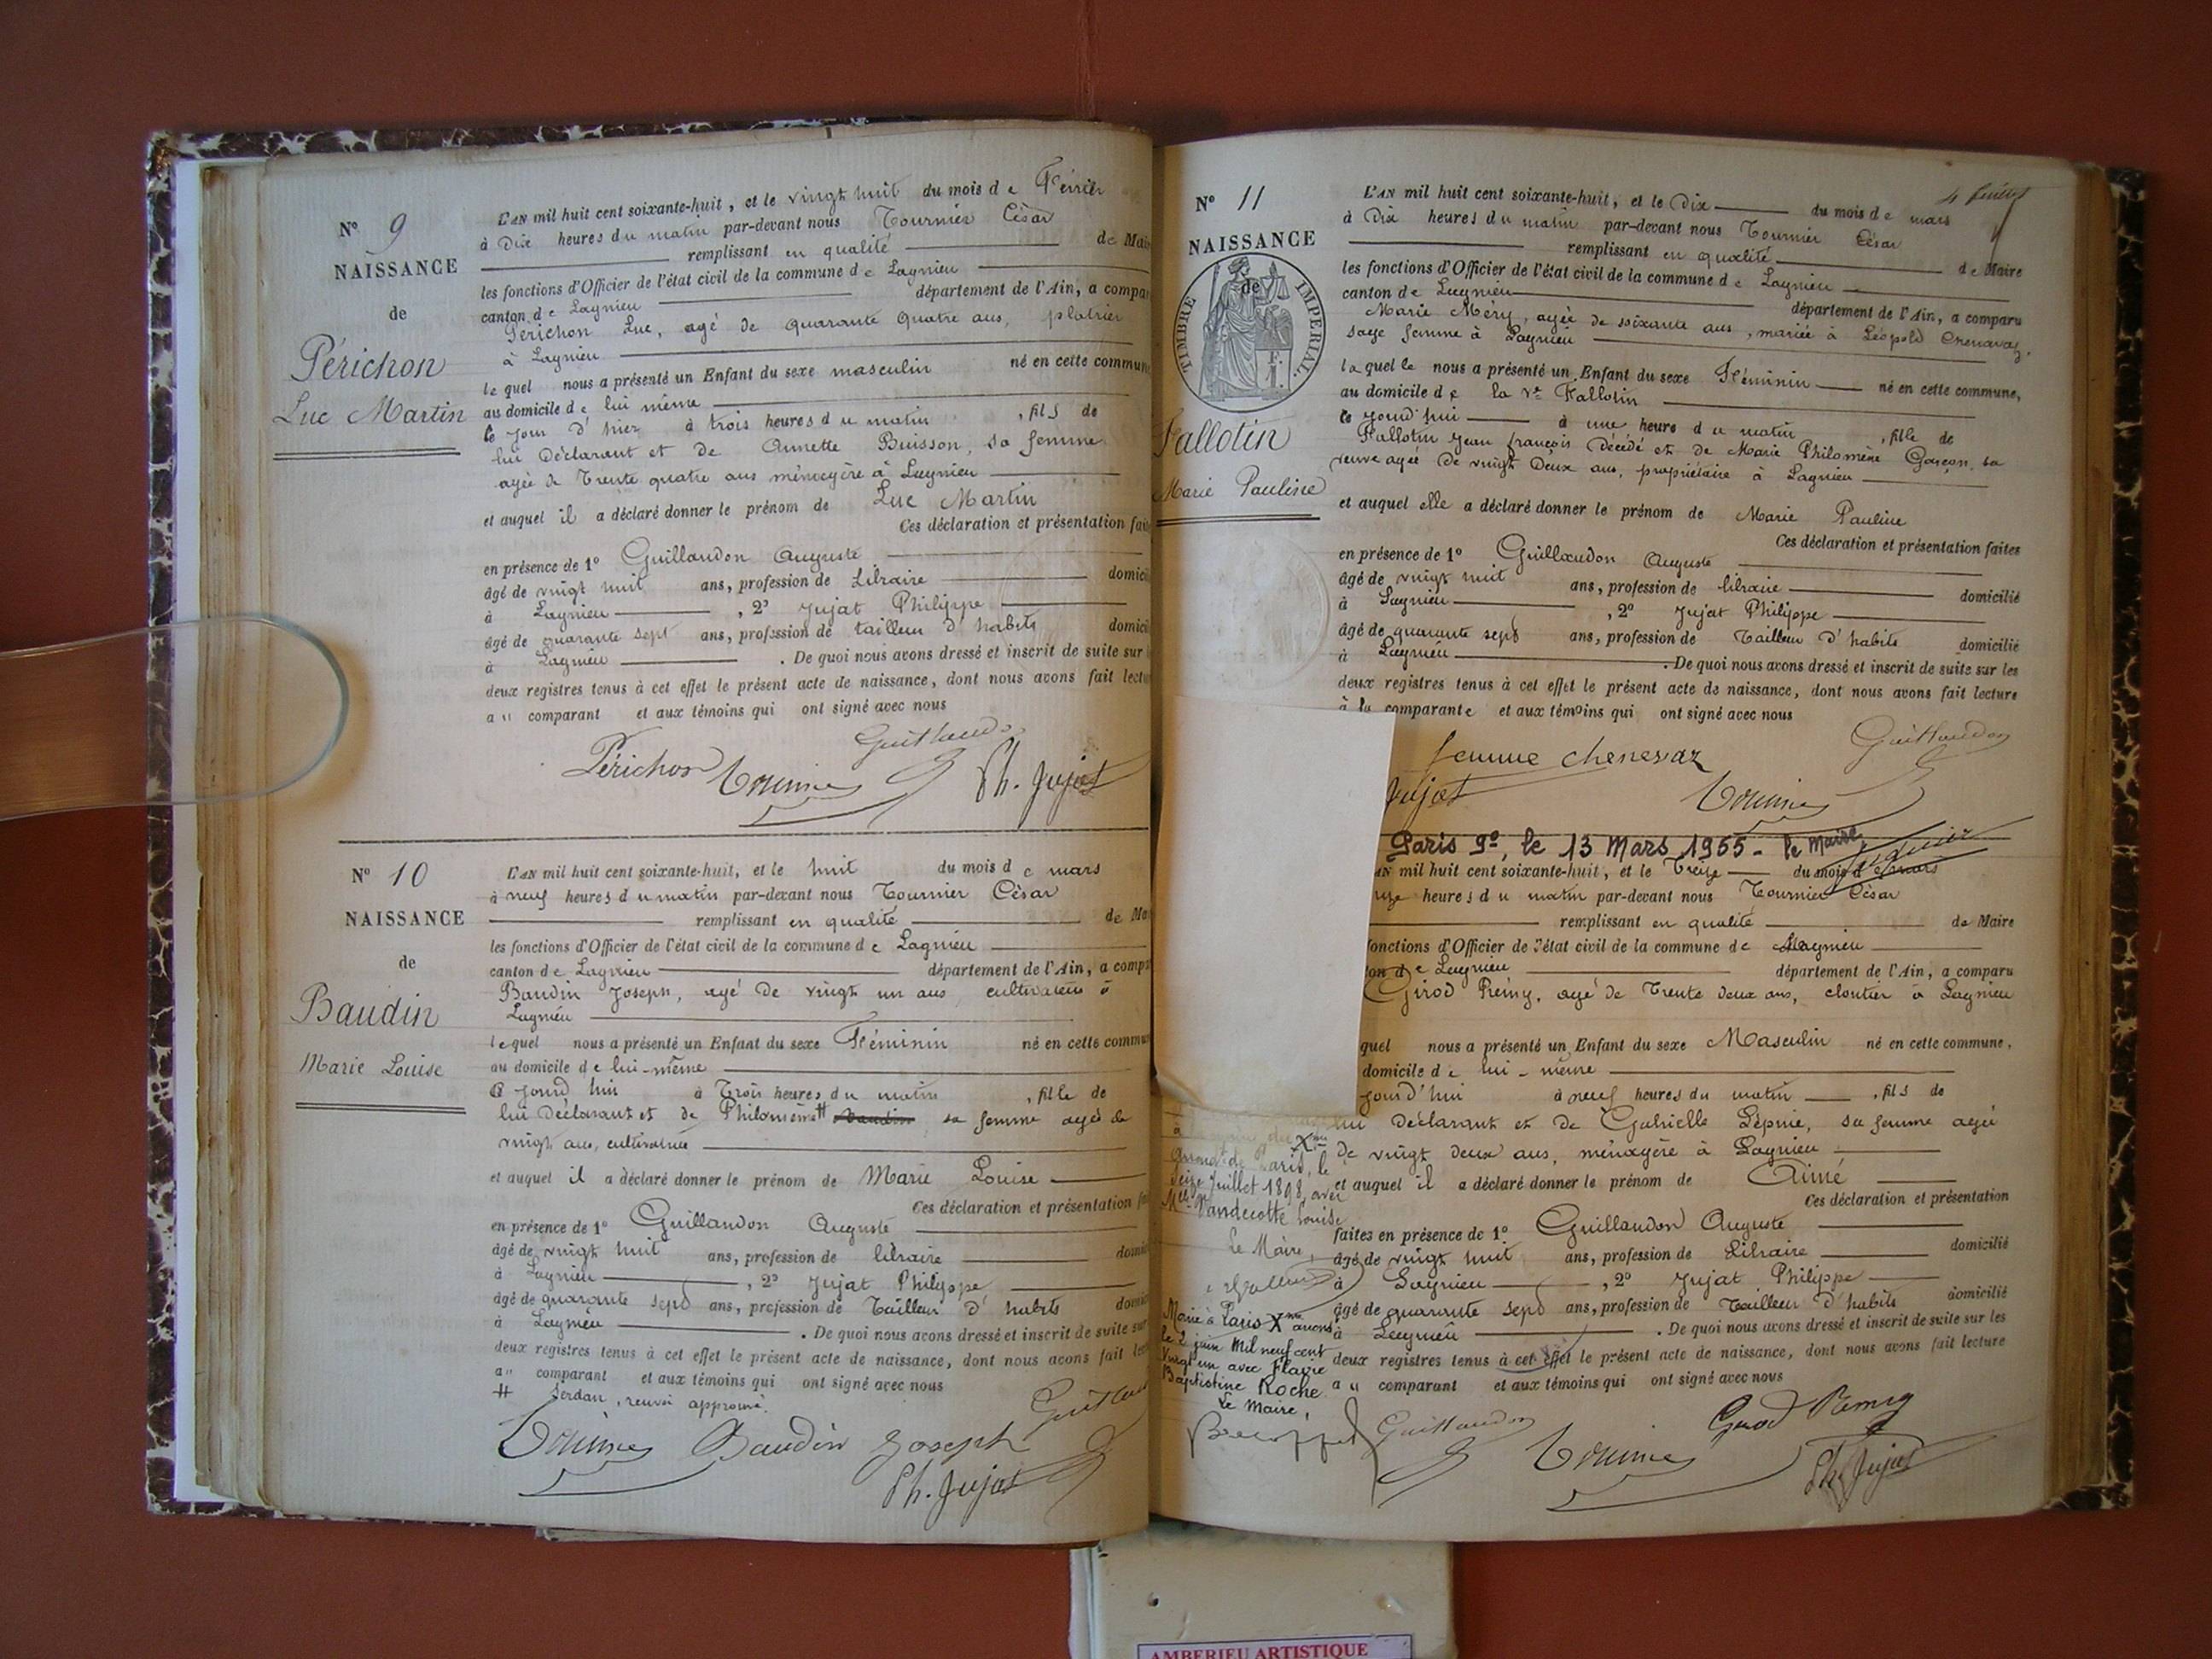 N° 9
NAISSANCE
de
Périchon
Luc Martin
L'AN mil huit cent soixante-huit, et le vingt huit du mois de Février
à Dix heures du matin par-devant nous Tournier César
remplissant en qualité de Mai
les fonctions d'Officier de l'état civil de la commune de Lagnieu
canton de Lagnieu département de l'Ain, a compa
Périchon Luc, agé de quarante quatre ans, platrier
à Lagnieu
lequel nous a présenté un Enfant du sexe masculin né en cette commun
au domicile de lui même
le jour d'hier à trois heures du matin, fils de
lui Déclarant et de Annette Buisson, sa femme
agée de Trente quatre ans ménagère à Lagnieu
et auquel il a déclaré donner le prénom de Luc Martin
Ces déclaration et présentation fait
en présence de 1° Guillaudon Auguste
âgé de vingt huit ans, profession de Libraire domici
à Lagnieu, 2° Jujat Philippe
âgé de quarante sept ans, profession de tailleur d'habits domici
à Lagnieu. De quoi nous avons dressé et inscrit de suite sur
deux registres tenus à cet effet le présent acte de naissance, dont nous avons fait lectu
au comparant et aux témoins qui ont signé avec nous
Périchon Tournier Guillaudon Ph. Jujat
N° 10
NAISSANCE
de
Baudin
Marie Louise
L'AN mil huit cent soixante-huit, et le huit du mois de mars
à neuf heures du matin par-devant nous Tournier César
remplissant en qualité de Ma
les fonctions d'Officier de l'état civil de la commune de Lagnieu
canton de Lagnieu département de l'Ain, a compa
Baudin Joseph, agé de vingt un ans cultivateur à
Lagnieu
lequel nous a présenté un Enfant du sexe Féminin né en cette commun
au domicile de lui-même
ce jourd'hui à Trois heures du matin, fille de
lui Déclarant et de Philomène # Baudin sa femme agée de
vingt ans, cultivatrice
et auquel il a déclaré donner le prénom de Marie Louise
Ces déclaration et présentation fai
en présence de 1° Guillaudon Auguste
âgé de vingt huit ans, profession de libraire domi
à Lagnieu, 2° Jujat Philippe
âgé de quarante sept ans, profession de Tailleur d'habits domi
à Lagnieu. De quoi nous avons dressé et inscrit de suite sur
deux registres tenus à cet effet le présent acte de naissance, dont nous avons fait lec
au comparant et aux témoins qui ont signé avec nous
# Jerdan, renvoi approuvé.
Tournier Baudin Joseph Guillau
Ph. Jujat
4 feuillet
N° 11
NAISSANCE
de
TIMBRE IMPERIAL
Fallotin
Marie Pauline
L'AN mil huit cent soixante-huit, et le Dix du mois de mars
à Dix heures du matin par-devant nous Tournier César
remplissant en qualité de Maire
les fonctions d'Officier de l'état civil de la commune de Lagnieu
canton de Lagnieu département de l'Ain, a comparu
Marie Méry, agée de soixante ans, mariée à Léopold Chenavaz,
sage femme à Lagnieu
laquelle nous a présenté un Enfant du sexe Féminin né en cette commune,
au domicile de la Ve Fallotin
ce jourd'hui à une heure du matin, fille de
Fallotin Jean françois Décédé et de Marie Philomène Garçon, sa
veuve agée de vingt Deux ans, propriétaire à Lagnieu
et auquel elle a déclaré donner le prénom de Marie Pauline
Ces déclaration et présentation faites
en présence de 1° Guillaudon Auguste
âgé de vingt huit ans, profession de libraire domicilié
à Lagnieu, 2° Jujat Philippe
âgé de quarante sept ans, profession de Tailleur d'habits domicilié
à Lagnieu. De quoi nous avons dressé et inscrit de suite sur les
deux registres tenus à cet effet le présent acte de naissance, dont nous avons fait lecture
à la comparante et aux témoins qui ont signé avec nous
femme chenevaz Guillaudon
Jujat Tournier
Paris 9e, le 13 Mars 1955 - le Maire,
AN mil huit cent soixante-huit, et le Treize du mois de mars
heures du matin par-devant nous Tournier César
remplissant en qualité de Maire
fonctions d'Officier de l'état civil de la commune de Lagnieu
on de Lagnieu département de l'Ain, a comparu
Girod Rémy, agé de Trente deux ans, cloutier à Lagnieu
quel nous a présenté un Enfant du sexe Masculin né en cette commune,
domicile de lui-même
jourd'hui à neuf heures du matin, fils de
lui déclarant et de Gabrielle Lépine, sa femme agée
de vingt deux ans, ménagère à Lagnieu
et auquel il a déclaré donner le prénom de Aimé
Ces déclaration et présentation
faites en présence de 1° Guillaudon Auguste
âgé de vingt huit ans, profession de Libraire domicilié
à Lagnieu, 2° Jujat Philippe
âgé de quarante sept ans, profession de Tailleur d'habits domicilié
à Lagnieu. De quoi nous avons dressé et inscrit de suite sur les
deux registres tenus à cet effet le présent acte de naissance, dont nous avons fait lecture
au comparant et aux témoins qui ont signé avec nous
Xme
Arrondt de Paris, le
seize Juillet 1898, avec
Melle Vandecotte Louise
le Maire,
Marié à Paris Xme arrondt
le 2 juin Mil neuf cent
vingt un avec Flavie
Baptistine Roche
Le Maire,
Guillaudon Tournier Girod Remy
Ph. Jujat
AMBERIEU ARTISTIQUE